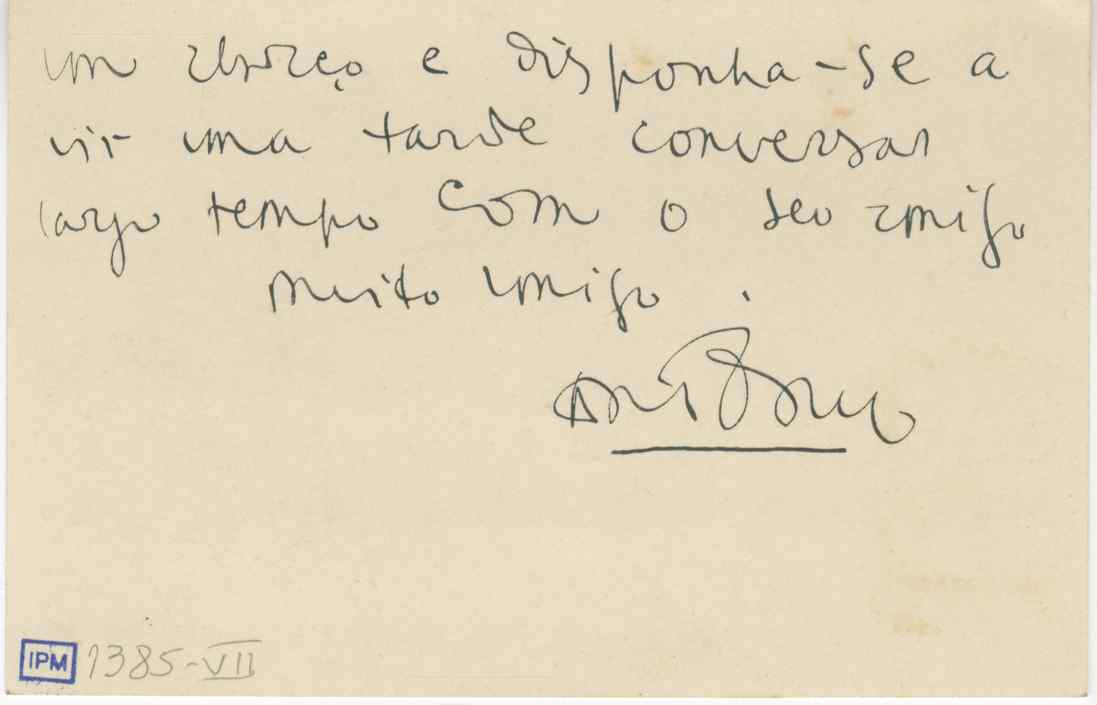 um abraço e disponha-se a
vir uma tarde conversar
largo tempo com o seu amigo
muito amigo.
IPM 1385-VII